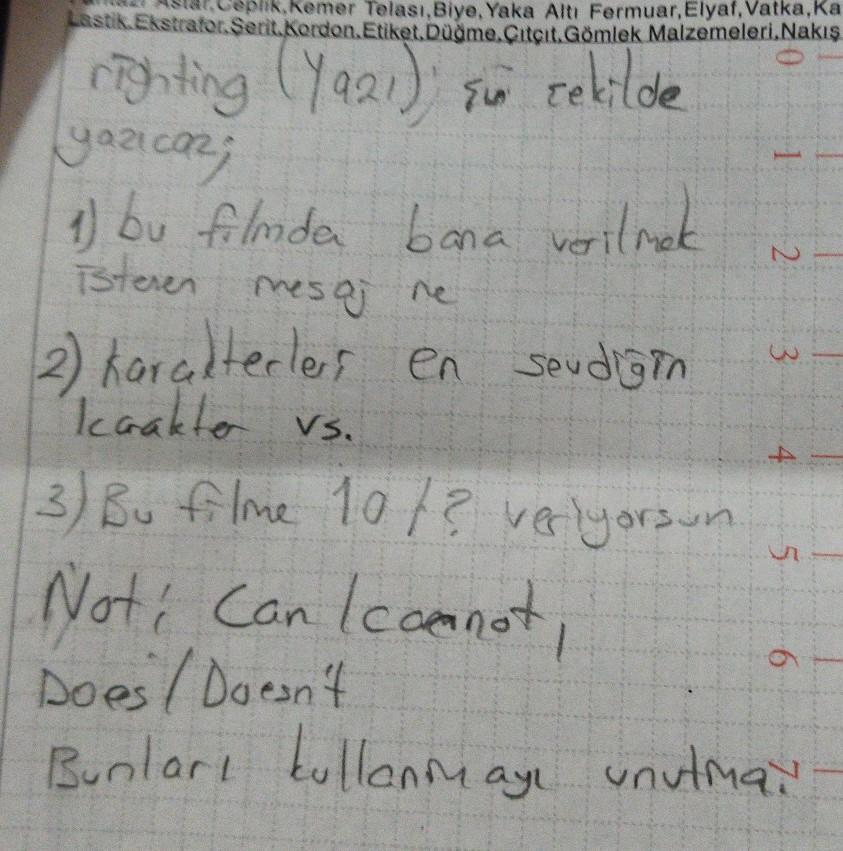 Astar,Ceplik,Kemer Telası,Biye,Yaka Altı Fermuar,Elyaf,Vatka,Ka
Lastik,Ekstrafor,Şerit,Kordon,Etiket,Düğme,Çıtçıt,Gömlek Malzemeleri,Nakış
righting (Yazı); şu şekilde
yazıcaz;
1) bu filmda bana verilmek
istenen mesaj ne
2) karakterler en sevdiğin
kaakter vs.
3) Bu filme 10/? veriyorsun
Not; Can/cannot,
Does/Doesn't
Bunları kullanmayı unutma!
0
1
2
3
4
5
6
7